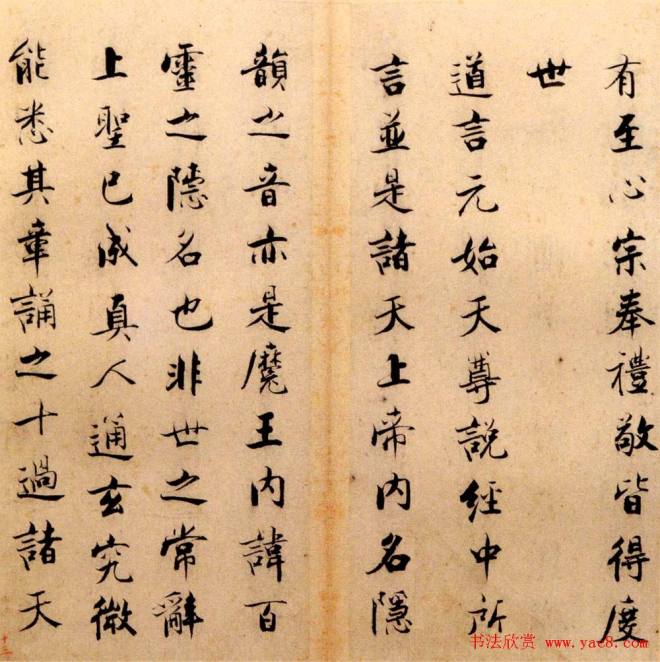 有至心宗奉禮敬皆得度
世
道言元始天尊說經中所
言並是諸天上帝内名隱
韻之音亦是魔王内諱百
靈之隱名也非世之常辭
上聖已成真人通玄究微
能悉其章誦之十過諸天
十三
书法欣赏 www.yac8.com